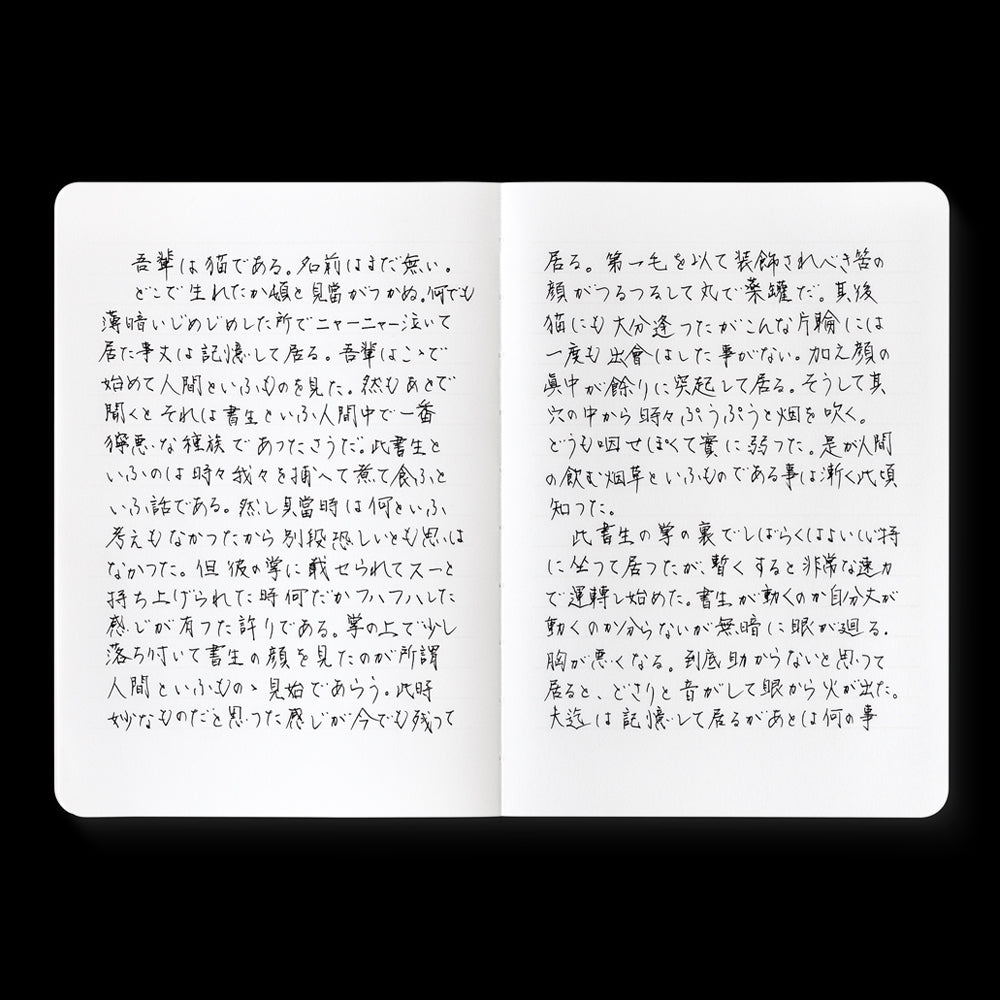 吾輩は猫である。名前はまだ無い。
どこで生れたか頓と見當がつかぬ。何でも
薄暗いじめじめした所でニャーニャー泣いて
居た事丈は記憶して居る。吾輩はこゝで
始めて人間といふものを見た。然もあとで
聞くとそれは書生といふ人間中で一番
獰悪な種族であつたさうだ。此書生と
いふのは時々我々を捕へて煮て食ふと
いふ話である。然し其當時は何といふ
考えもなかつたから別段恐しいとも思は
なかつた。但彼の掌に載せられてスーと
持ち上げられた時何だかフハフハした
感じが有つた許りである。掌の上で少し
落ち付いて書生の顔を見たのが所謂
人間といふものゝ見始であらう。此時
妙なものだと思つた感じが今でも残つて
居る。第一毛を以て装飾されべき筈の
顔がつるつるして丸で薬罐だ。其後
猫にも大分逢つたがこんな片輪には
一度も出會はした事がない。加之顔の
眞中が餘りに突起して居る。そうして其
穴の中から時々ぷうぷうと烟を吹く。
どうも咽せぽくて實に弱つた。是が人間
の飲む烟草といふものである事は漸く此頃
知つた。
此書生の掌の裏でしばらくはよい心持
に坐つて居つたが、暫くすると非常な速力
で運轉し始めた。書生が動くのか自分丈が
動くのか分らないが無暗に眼が廻る。
胸が悪くなる。到底助からないと思つて
居ると、どさりと音がして眼から火が出た。
夫迄は記憶して居るがあとは何の事